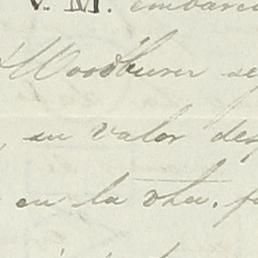 V. M. embarc
Woodburn se
, su valor des
en la vha. f